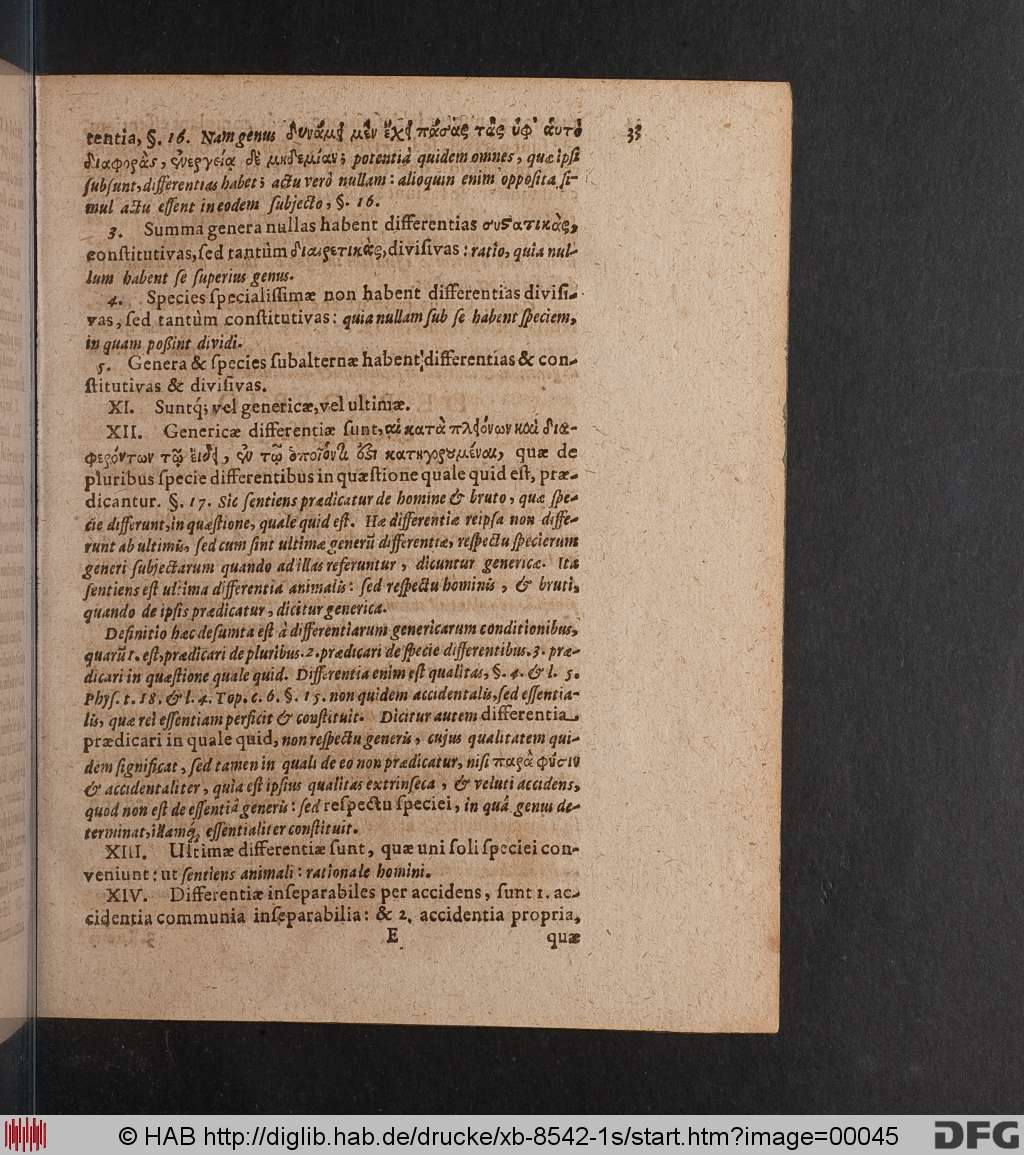 33
tentia, §. 16. Nam genus δυνάμει μὲν ἔχει πάσας τὰς ὑφ' αὑτὸ
διαφορὰς, ἐνεργείᾳ δὲ μηδεμίαν; potentiâ quidem omnes, quæ ipsi
subsunt, differentias habet; actu verò nullam: alioquin enim opposita si-
mul actu essent in eodem subjecto, §. 16.
3. Summa genera nullas habent differentias συστατικὰς,
constitutivas, sed tantùm διαιρετικὰς, divisivas: ratio, quia nul-
lum habent se superius genus.
4. Species specialissimæ non habent differentias divisi-
vas, sed tantùm constitutivas: quia nullam sub se habent speciem,
in quam poßint dividi.
5. Genera & species subalternæ habent differentias & con-
stitutivas & divisivas.
XI. Suntq́; vel genericæ, vel ultimæ.
XII. Genericæ differentiæ sunt, αἱ κατὰ πλειόνων καὶ δια-
φερόντων τῷ εἴδει, ἐν τῷ ὁποῖόν τί ἐστι κατηγορούμεναι, quæ de
pluribus specie differentibus in quæstione quale quid est, præ-
dicantur. §. 17. Sic sentiens prædicatur de homine & bruto, quæ spe-
cie differunt, in quæstione, quale quid est. Hæ differentiæ reipsa non diffe-
runt ab ultimis, sed cum sint ultimæ generũ differentiæ, respectu specierum
generi subjectarum quando ad illas referuntur, dicuntur genericæ. Ita
sentiens est ultima differentia animalis: sed respectu hominis, & bruti,
quando de ipsis prædicatur, dicitur generica.
Definitio hæc desumta est à differentiarum genericarum conditionibus,
quarũ 1. est, prædicari de pluribus. 2. prædicari de specie differentibus. 3. præ-
dicari in quæstione quale quid. Differentia enim est qualitas, §. 4. & l. 5.
Phys. t. 18. & l. 4. Top. c. 6. §. 15. non quidem accidentalis, sed essentia-
lis, quæ rei essentiam perficit & constituit. Dicitur autem differentia,
prædicari in quale quid, non respectu generis, cujus qualitatem qui-
dem significat, sed tamen in quali de eo non prædicatur, nisi παρὰ φύσιν
& accidentaliter, quia est ipsius qualitas extrinseca, & veluti accidens,
quod non est de essentiâ generis: sed respectu speciei, in quâ genus de-
terminat, illamq́; essentialiter constituit.
XIII. Ultimæ differentiæ sunt, quæ uni soli speciei con-
veniunt: ut sentiens animali: rationale homini.
XIV. Differentiæ inseparabiles per accidens, sunt 1. ac-
cidentia communia inseparabilia: & 2. accidentia propria,
E quæ
© HAB http://diglib.hab.de/drucke/xb-8542-1s/start.htm?image=00045
DFG